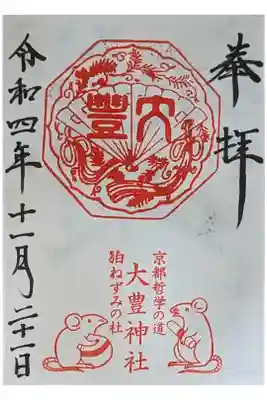 奉拝
大豐
京都哲学の道
大豊神社
狛ねずみの社
令和四年十一月二十一日